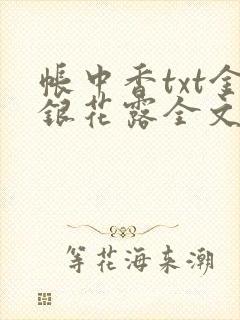 帐中香txt金
银花露全文
等花海来潮